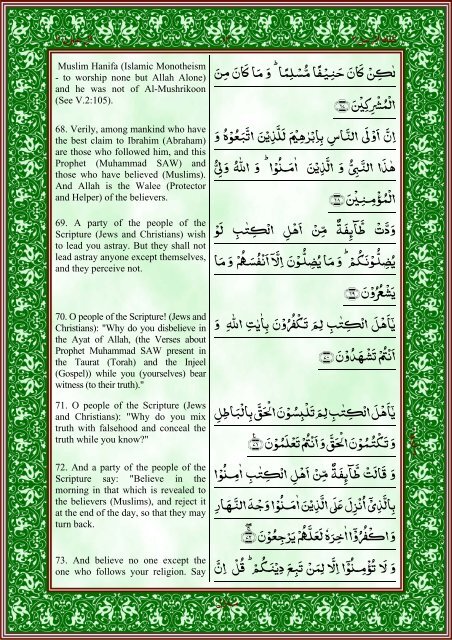 Muslim Hanifa (Islamic Monotheism
- to worship none but Allah Alone)
and he was not of Al-Mushrikoon
(See V.2:105).
لٰكِنْ كَانَ حَنِيْفًا مُّسْلِمًا ؕ وَ مَا كَانَ مِنَ
الْمُشْرِكِيْنَ ﴿۶۷﴾
68. Verily, among mankind who have
the best claim to Ibrahim (Abraham)
are those who followed him, and this
Prophet (Muhammad SAW) and
those who have believed (Muslims).
And Allah is the Walee (Protector
and Helper) of the believers.
اِنَّ اَوْلَى النَّاسِ بِاِبْرٰهِيْمَ لَلَّذِيْنَ اتَّبَعُوْهُ وَ
هٰذَا النَّبِيُّ وَ الَّذِيْنَ اٰمَنُوْا ؕ وَ اللّٰهُ وَلِيُّ
الْمُؤْمِنِيْنَ ﴿۶۸﴾
69. A party of the people of the
Scripture (Jews and Christians) wish
to lead you astray. But they shall not
lead astray anyone except themselves,
and they perceive not.
وَدَّتْ طَّآئِفَةٌ مِّنْ اَهْلِ الْكِتٰبِ لَوْ
يُضِلُّوْنَكُمْ ؕ وَ مَا يُضِلُّوْنَ اِلَّاۤ اَنْفُسَهُمْ وَ مَا
يَشْعُرُوْنَ ﴿۶۹﴾
70. O people of the Scripture! (Jews and
Christians): "Why do you disbelieve in
the Ayat of Allah, (the Verses about
Prophet Muhammad SAW present in
the Taurat (Torah) and the Injeel
(Gospel)) while you (yourselves) bear
witness (to their truth)."
يٰۤاَهْلَ الْكِتٰبِ لِمَ تَكْفُرُوْنَ بِاٰيٰتِ اللّٰهِ وَ
اَنْتُمْ تَشْهَدُوْنَ ﴿۷۰﴾
71. O people of the Scripture (Jews
and Christians): "Why do you mix
truth with falsehood and conceal the
truth while you know?"
يٰۤاَهْلَ الْكِتٰبِ لِمَ تَلْبِسُوْنَ الْحَقَّ بِالْبَاطِلِ
وَ تَكْتُمُوْنَ الْحَقَّ وَ اَنْتُمْ تَعْلَمُوْنَ ﴿۷۱﴾
72. And a party of the people of the
Scripture say: "Believe in the
morning in that which is revealed to
the believers (Muslims), and reject it
at the end of the day, so that they may
turn back.
وَ قَالَتْ طَّآئِفَةٌ مِّنْ اَهْلِ الْكِتٰبِ اٰمِنُوْا
بِالَّذِيْۤ اُنْزِلَ عَلَى الَّذِيْنَ اٰمَنُوْا وَجْهَ النَّهَارِ
وَ اكْفُرُوْۤا اٰخِرَهٗ لَعَلَّهُمْ يَرْجِعُوْنَ ﴿۷۲﴾
73. And believe no one except the
one who follows your religion. Say
وَ لَا تُؤْمِنُوْۤا اِلَّا لِمَنْ تَبِعَ دِيْنَكُمْ ؕ قُلْ اِنَّ